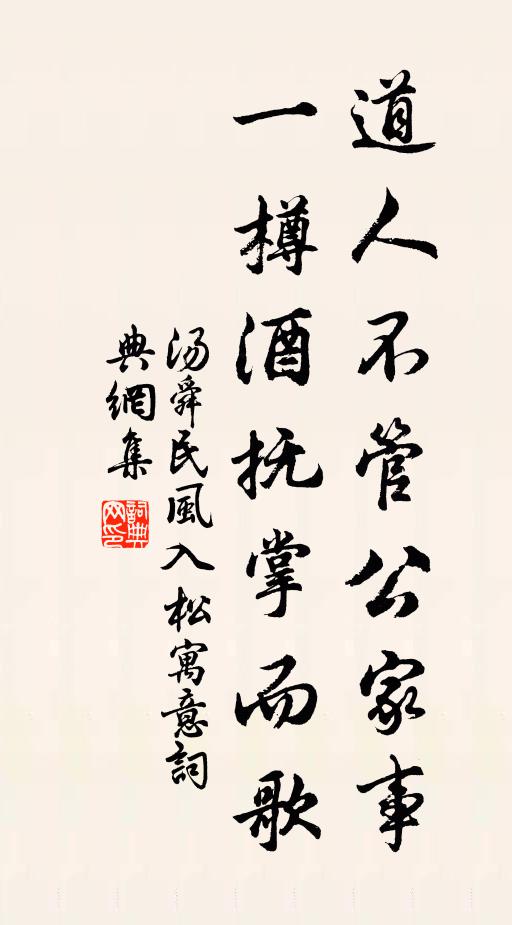 道人不管公家事
一樽酒抚掌而歌
汤舜民風入松寓意詞
典網集
詞典网印